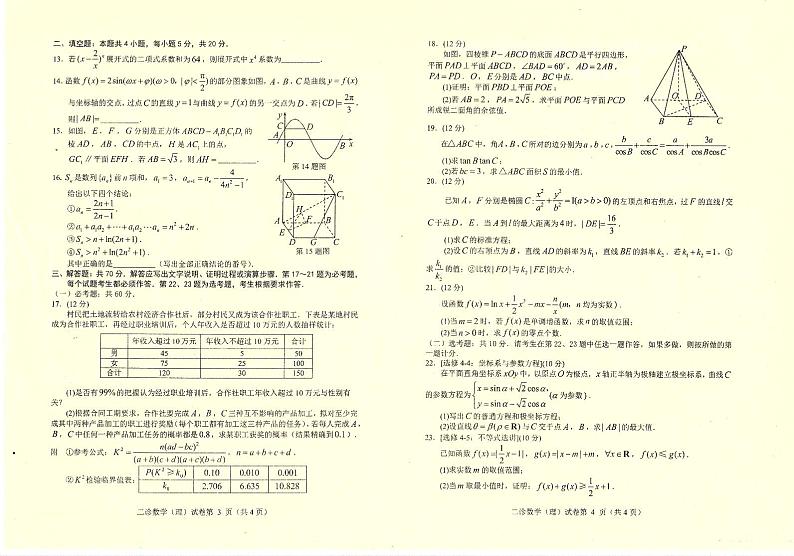 二、填空题：本题共4小题，每小题5分，共20分.
13. 若(x-2/x)ⁿ展开式的二项式系数和为64，则展开式中x⁴系数为________.
14. 函数f(x)=2sin(ωx+φ)(ω>0,|φ|<π/2)的部分图象如图，A，B，C是曲线y=f(x)
与坐标轴的交点，过点C的直线y=1与曲线y=f(x)的另一交点为D. 若|CD|=2π/3，
则|AB|=________.
第14题图
15. 如图，E，F，G分别是正方体ABCD-A₁B₁C₁D₁的
棱AD，AB，CD的中点，H是AC₁上的点，
GC₁∥平面EFH. 若AB=√3，则AH=________.
16. Sₙ是数列{aₙ}前n项和，a₁=3，aₙ₊₁=aₙ-4/(4n²-1)，
给出以下四个结论：
①aₙ=(2n+1)/(2n-1)，
②a₁+a₁a₂+⋯+a₁a₂⋯aₙ=n²+2n.
③Sₙ>n+ln(2n+1).
④Sₙ>n²+ln(2n+1).
其中正确的是________（写出全部正确结论的番号）.
第15题图
三、解答题：共70分. 解答应写出文字说明、证明过程或演算步骤. 第17～21题为必考题，
每个试题考生都必须作答. 第22、23题为选考题，考生根据要求作答.
（一）必考题：共60分.
17. (12分)
村民把土地流转给农村经济合作社后，部分村民又成为该合作社职工. 下表是某地村民
成为合作社职工，再经过职业培训后，个人年收入是否超过10万元的人数抽样统计：
年收入超过10万元 年收入不超过10万元 合计
男 45 5 50
女 75 25 100
合计 120 30 150
(1)是否有99%的把握认为经过职业培训后，合作社职工年收入超过10万元与性别有
关？
(2)根据合同工期要求，合作社要完成A，B，C三种互不影响的产品加工，拟对至少完
成其中两种产品加工的职工进行奖励(每个职工都有加工这三种产品的任务). 若每人完成A，
B，C中任何一种产品加工任务的概率都是0.8，求某职工获奖的概率（结果精确到0.1）.
附 ①参考公式：K²=n(ad-bc)²/((a+b)(c+d)(a+c)(b+d))，n=a+b+c+d.
②K²检验临界值表：
P(K²≥k₀) 0.10 0.010 0.001
k₀ 2.706 6.635 10.828
二诊数学（理）试卷第 3 页（共4页）
18. (12分)
如图，四棱锥P-ABCD的底面ABCD是平行四边形，
平面PAD⊥平面ABCD，∠BAD=60°，AD=2AB，
PA=PD，O，E分别是AD，BC中点.
(1)证明：平面PBD⊥平面POE；
(2)若AB=2，PA=2√5，求平面POE与平面PCD
所成锐二面角的余弦值.
19. (12分)
在△ABC中，角A，B，C所对的边分别为a，b，c，b/cosB+c/cosC=a/cosA+3a/cosBcosC.
(1)求tanBtanC；
(2)若bc=3，求△ABC面积S的最小值.
20. (12分)
已知A，F分别是椭圆C:x²/a²+y²/b²=1(a>b>0)的左顶点和右焦点，过F的直线l交
C于点D，E. 当A到l的最大距离为4时，|DE|=16/3.
(1)求C的标准方程；
(2)设C的右顶点为B，直线AD的斜率为k₁，直线BE的斜率k₂. 若k₁+k₂=1，①
求k₁/k₂的值；②比较|FD|与k₂|FE|的大小.
21. (12分)
设函数f(x)=lnx+1/2x²-mx-n/x(m，n均为实数).
(1)当m=2时，若f(x)是单调增函数，求n的取值范围；
(2)当n>0时，求f(x)的零点个数.
（二）选考题：共10分. 请考生在第22、23题中任选一题作答，如果多做，则按所做的第
一题计分.
22. [选修4-4：坐标系与参数方程](10分)
在平面直角坐标系xOy中，以原点O为极点，x轴正半轴为极轴建立极坐标系，曲线C
的参数方程为{x=sinα+√2cosα, y=sinα-√2cosα (α为参数).
(1)写出C的普通方程和极坐标方程；
(2)设直线θ=β(ρ∈R)与C交于点A，B，求|AB|的最大值.
23. [选修4-5，不等式选讲](10分)
已知函数f(x)=|1/2x-1|，g(x)=|x-m|+m，∀x∈R，f(x)≤g(x).
(1)求实数m的取值范围；
(2)当m取最小值时，证明：f(x)+g(x)≥1/2x+1.
二诊数学（理）试卷第 4 页（共4页）